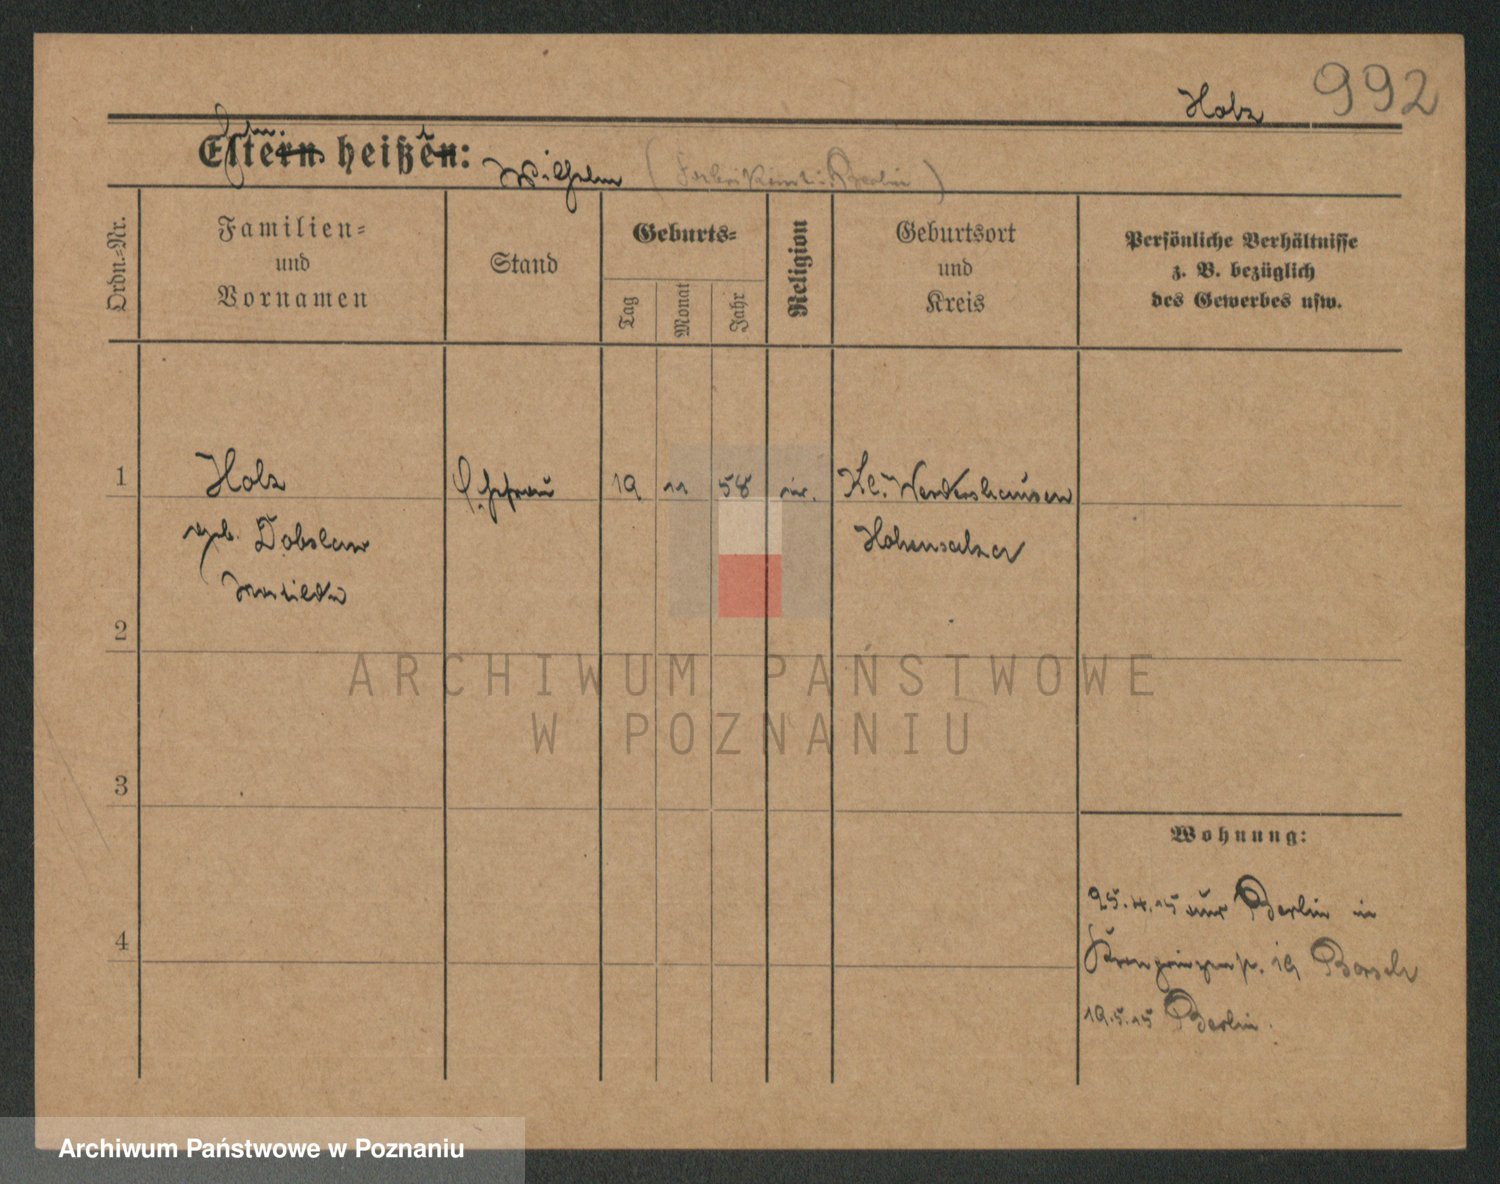 992
Holz
Eltern heißen: Wilhelm (Fabrikant: Berlin)
Ordn.=Nr.
Familien=
und
Vornamen
Stand
Geburts=
Tag
Monat
Jahr
Religion
Geburtsort
und
Kreis
Persönliche Verhältnisse
z. B. bezüglich
des Gewerbes usw.
1
Holz
geb. Dobslaw
Ehefrau
19
11
58
Kl.
Hohensalza
2
3
4
Wohnung:
25.4.15 aus Berlin in
Kronprinzenstr. 19
19.5.15 Berlin.
ARCHIWUM PAŃSTWOWE
W POZNANIU
Archiwum Państwowe w Poznaniu